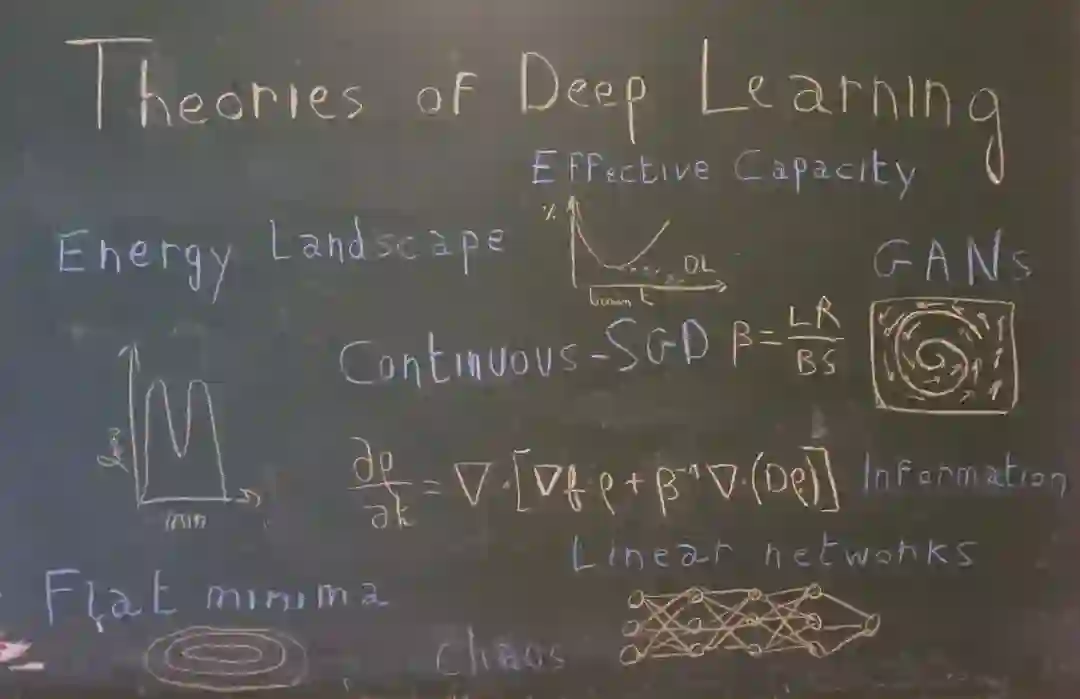 Theories of Deep Learning
Effective Capacity
%
DL
Energy Landscape
GANs
Continuous-SGD β = LR/BS
∂ρ/∂t = ∇·[∇f·ρ + β⁻¹∇·(Dρ)]
Information
min
Linear networks
Flat minima
chaos